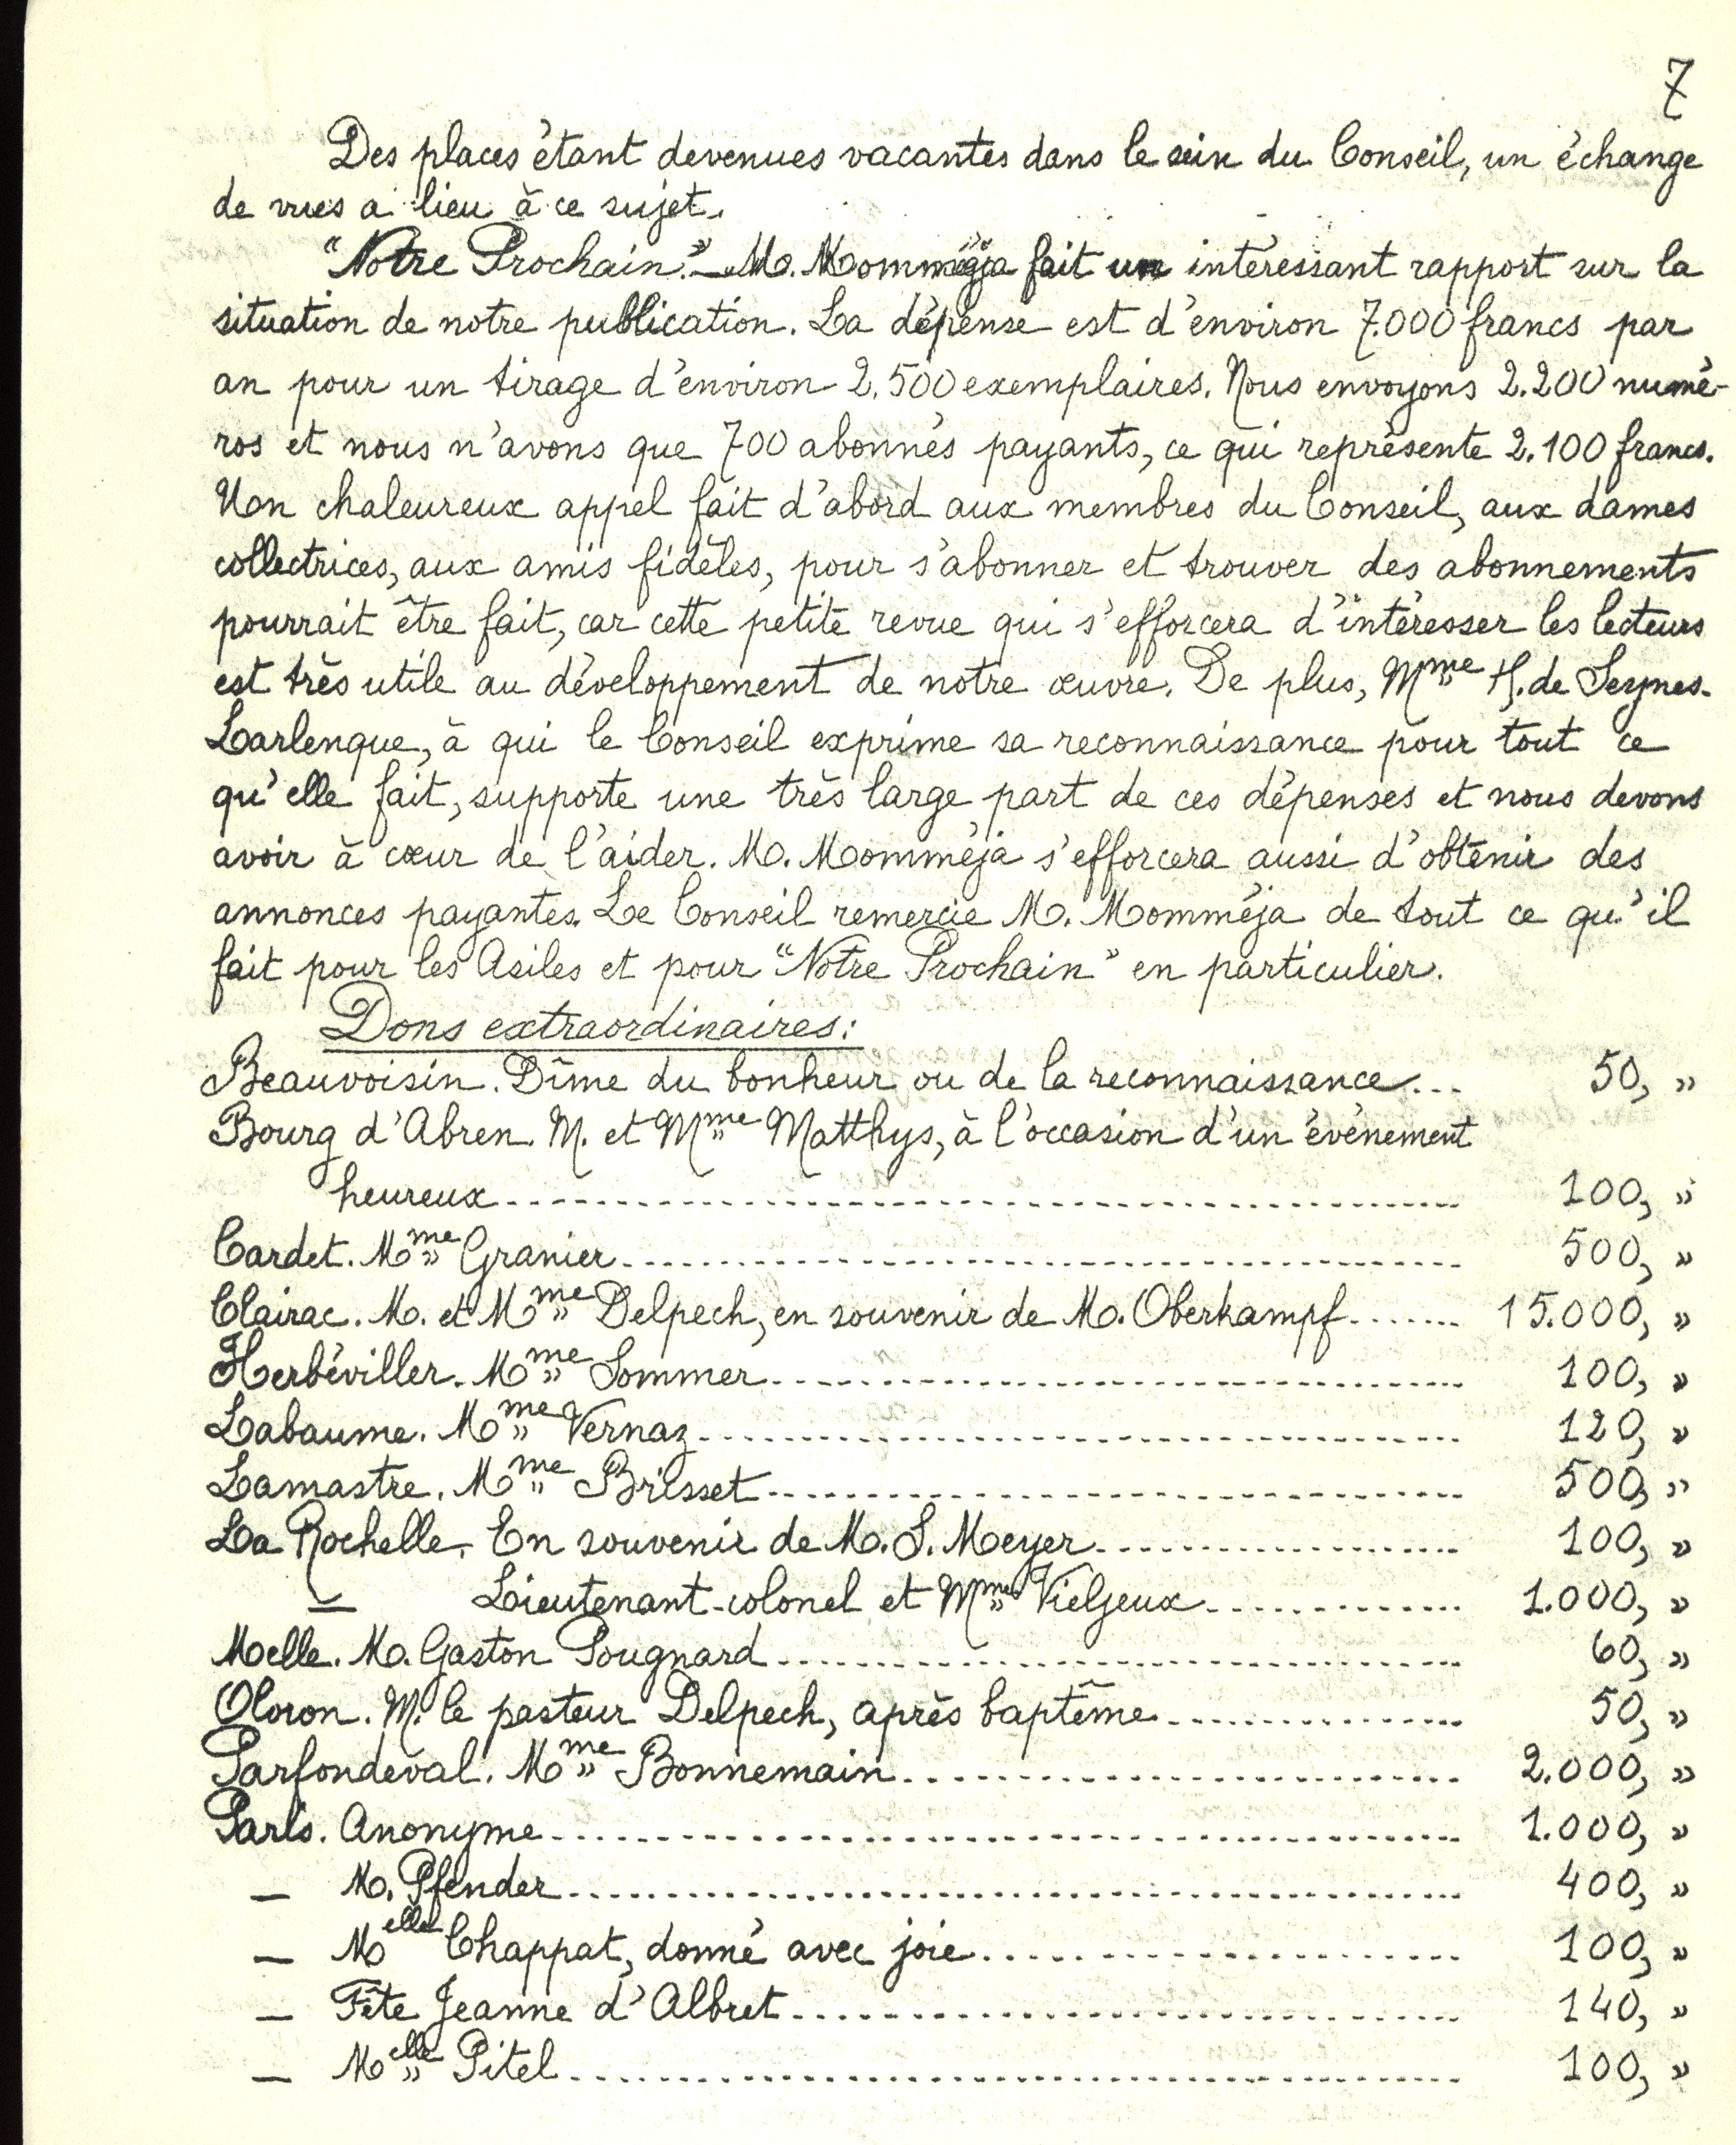 7
Des places étant devenues vacantes dans le sein du Conseil, un échange
de vues a lieu à ce sujet.
"Notre Prochain". — M. Momméja fait un intéressant rapport sur la
situation de notre publication. La dépense est d'environ 7.000 francs par
an pour un tirage d'environ 2.500 exemplaires. Nous envoyons 2.200 numé-
ros et nous n'avons que 700 abonnés payants, ce qui représente 2.100 francs.
Un chaleureux appel fait d'abord aux membres du Conseil, aux dames
collectrices, aux amis fidèles, pour s'abonner et trouver des abonnements
pourrait être fait, car cette petite revue qui s'efforcera d'intéresser les lecteurs
est très utile au développement de notre œuvre. De plus, Mme H. de Seynes-
Larlenque, à qui le Conseil exprime sa reconnaissance pour tout ce
qu'elle fait, supporte une très large part de ces dépenses et nous devons
avoir à cœur de l'aider. M. Momméja s'efforcera aussi d'obtenir des
annonces payantes. Le Conseil remercie M. Momméja de tout ce qu'il
fait pour les Asiles et pour "Notre Prochain" en particulier.
Dons extraordinaires:
Beauvoisin. Dîme du bonheur ou de la reconnaissance... 50, »
Bourg d'Abren. M. et Mme Matthys, à l'occasion d'un événement
heureux ........ 100, »
Cardet. Mme Granier ........ 500, »
Clairac. M. et Mme Delpech, en souvenir de M. Oberkampf ....... 15.000, »
Herbéviller. Mme Sommer ........ 100, »
Labaume. Mme Vernaz ........ 120, »
Lamastre. Mme Brisset ........ 500, »
La Rochelle. En souvenir de M. S. Meyer ........ 100, »
— Lieutenant-colonel et Mme Vieljeux ........ 1.000, »
Melle. M. Gaston Pougnard ........ 60, »
Oloron. M. le pasteur Delpech, après baptême ........ 50, »
Parfondeval. Mme Bonnemain ........ 2.000, »
Paris. Anonyme ........ 1.000, »
— M. Pfender ........ 400, »
— Melle Chappat, donné avec joie ........ 100, »
— Fête Jeanne d'Albret ........ 140, »
— Melle Pitel ........ 100, »